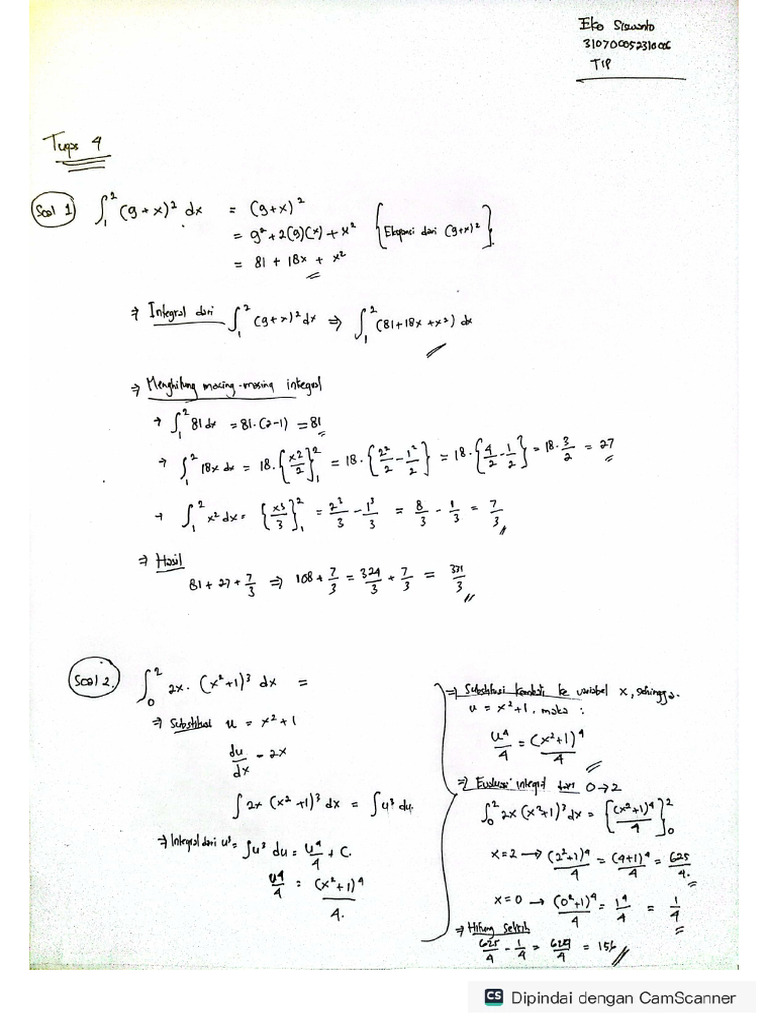 Eko Siswanto
31070005231006
TIP
Tugas 4
Soal 1 ∫₁² (9+x)² dx = (9+x)²
= 9² + 2(9)(x) + x² {Ekspansi dari (9+x)²}.
= 81 + 18x + x²
⇒ Integral dari ∫₁² (9+x)² dx ⇒ ∫₁² (81+18x+x²) dx
⇒ Menghitung masing-masing integral
→ ∫₁² 81 dx = 81·(2-1) = 81
→ ∫₁² 18x dx = 18·{x²/2}₁² = 18·{2²/2 - 1²/2} = 18·{4/2 - 1/2} = 18·3/2 = 27
→ ∫₁² x² dx = {x³/3}₁² = 2³/3 - 1³/3 = 8/3 - 1/3 = 7/3
⇒ Hasil
81 + 27 + 7/3 ⇒ 108 + 7/3 = 324/3 + 7/3 = 331/3
Soal 2. ∫₀² 2x·(x²+1)³ dx =
⇒ Substitusi u = x²+1
du/dx = 2x
∫ 2x (x²+1)³ dx = ∫ u³ du
⇒ Integral dari u³ = ∫ u³ du = u⁴/4 + C.
u⁴/4 = (x²+1)⁴/4.
⇒ Substitusi kembali ke variabel x, sehingga.
u = x²+1. maka :
u⁴/4 = (x²+1)⁴/4
⇒ Evaluasi integral dari 0→2
∫₀² 2x(x²+1)³ dx = {(x²+1)⁴/4}₀²
x=2 → (2²+1)⁴/4 = (4+1)⁴/4 = 625/4.
x=0 → (0²+1)⁴/4 = 1⁴/4 = 1/4
⇒ Hitung Selisih
625/4 - 1/4 = 624/4 = 156
CS Dipindai dengan CamScanner